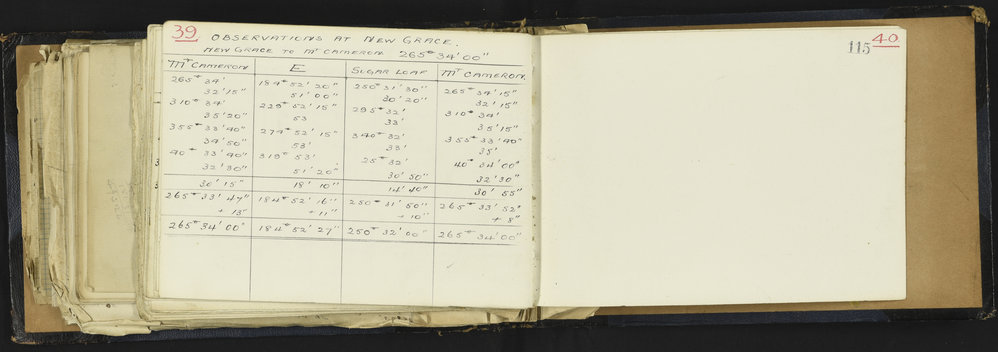 39
OBSERVATIONS AT NEW GRACE.
NEW GRACE TO MT CAMERON 265° 34' 00"
MT CAMERON E SUGAR LOAF MT CAMERON
265° 34' 184° 52' 20" 250° 31' 30" 265° 34' 15"
32' 15" 51' 00" 30' 20" 32' 15"
310° 34' 229° 52' 15" 295° 32' 310° 34'
35' 20" 53 33' 35' 15"
355° 33' 40" 274° 52' 15" 340° 32' 355° 33' 40"
34' 50" 53' 33' 35'
40° 33' 40" 319° 53' 25° 32' 40° 34' 00"
32' 30" 51' 20" 30' 50" 32' 30"
30' 15" 18' 10" 14' 40" 30' 55"
265° 33' 47" 184° 52' 16" 250° 31' 50" 265° 33' 52"
+ 13" + 11" + 10" + 8"
265° 34' 00" 184° 52' 27" 250° 32' 00" 265° 34' 00"
115
40